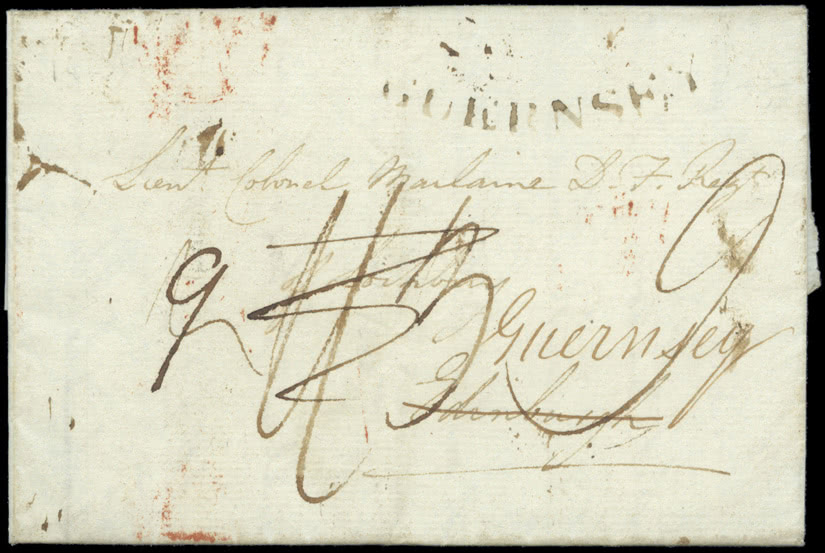 GUERNSEY
Lieut Colonel Maclaine D. F. Regt
9
Guernsey
Edinburgh